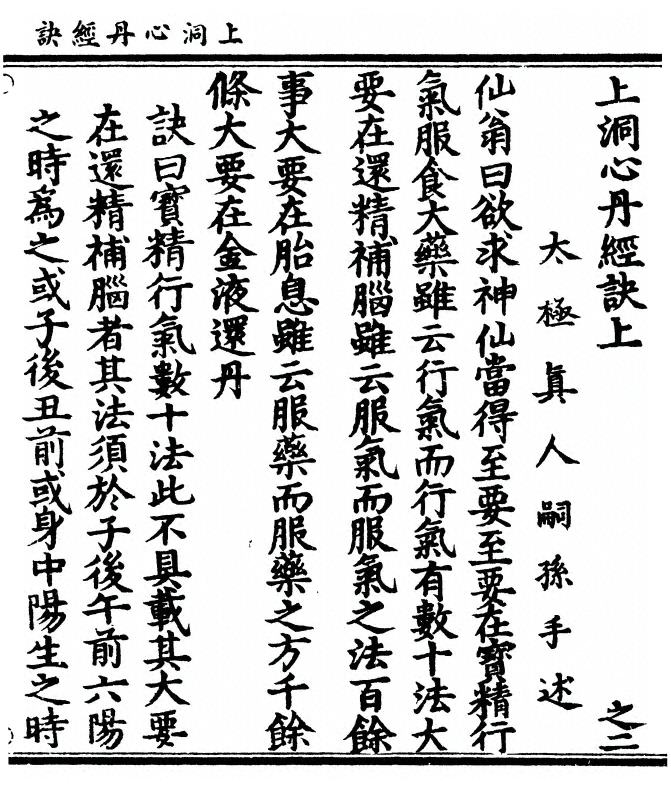 上洞心丹經訣
上洞心丹經訣上
之二
太極眞人嗣孫手述
仙翁曰欲求神仙當得至要至要在寶精行
氣服食大藥雖云行氣而行氣有數十法大
要在還精補腦雖云服氣而服氣之法百餘
事大要在胎息雖云服藥而服藥之方千餘
條大要在金液還丹
訣曰寶精行氣數十法此不具載其大要
在還精補腦者其法須於子後午前六陽
之時爲之或子後丑前或身中陽生之時